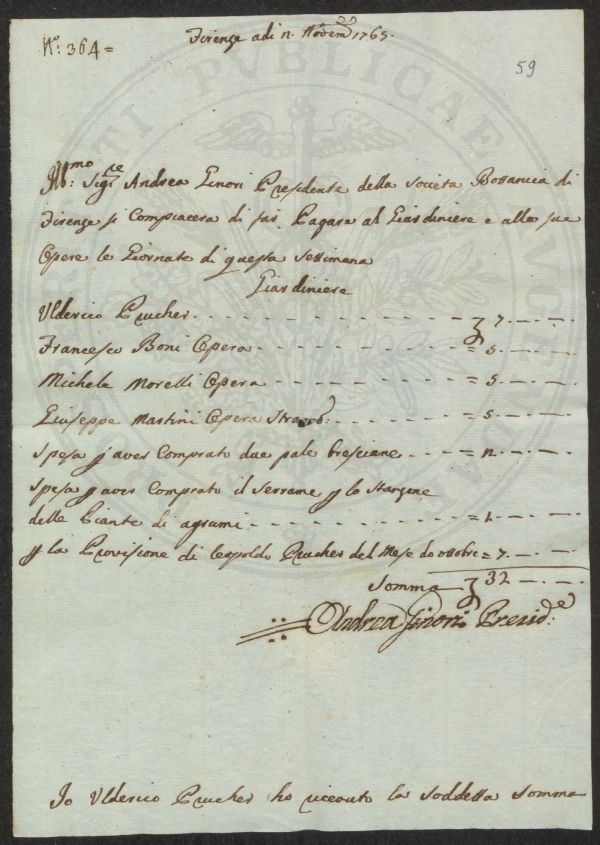 N.º 364 =
Firenze adi 2 Novem̃ 1765.
59
Ill:mo Sig:re Andrea Ginori Presidente della Societa Bottanica di
Firenze si Compiacera di far Pagare al Giardiniere e alle sue
Opere le Giornate di questa Settimana
Giardiniere
Ulderico Prucher - - - - - - - - - 7. — . —
Francesco Boni Opera - - - - - - = 5. — . —
Michele Morelli Opera - - - - - - = 5. — . —
Giuseppe Martini Opera Straorb: - - - - = 5 — . —
Spesa p aver Comprato due pale bresciane - - - = 2. — . —
Spesa p aver Comprato il Serrame p lo Stanzone
delle Piante di agrumi - - - - - - - = 1. — . —
p la Provisione di Leopoldo Prucher del Mese do ottobre = 7. — . —
Somma 32 — . —
Andrea Ginori Presid:e
Io Ulderico Prucher ho riceuto la Soddetta Somma